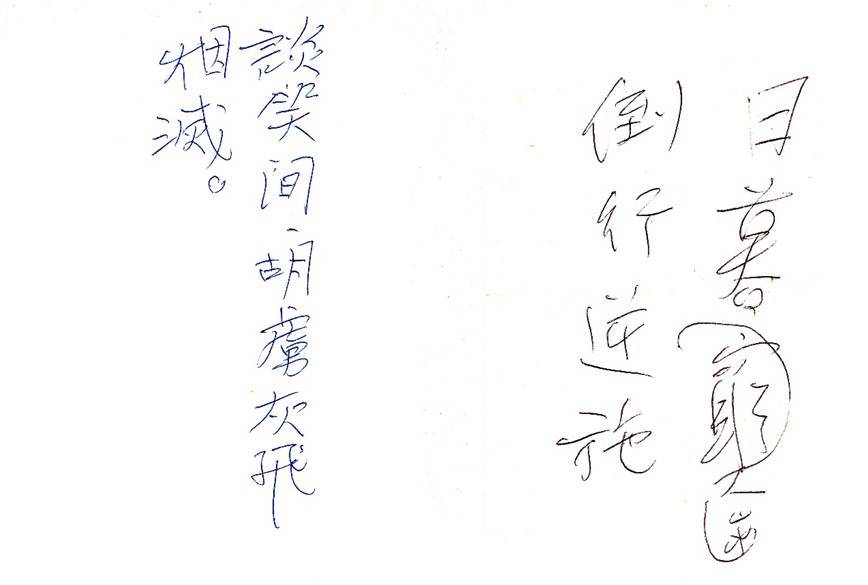 日暮
倒行逆施
談笑间、胡虜灰飛
烟滅。